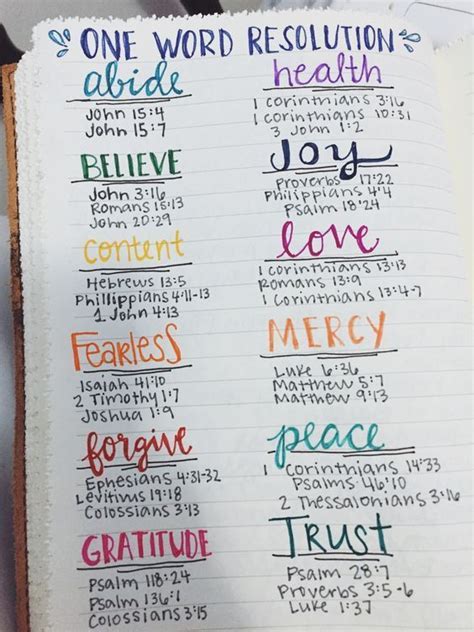 ONE WORD RESOLUTION
abide
John 15:4
John 15:7
BELIEVE
John 3:16
Romans 15:13
John 20:29
content
Hebrews 13:5
Phillippians 4:11-13
1 John 4:13
Fearless
Isaiah 41:10
2 Timothy 1:7
Joshua 1:9
forgive
Ephesians 4:31-32
Levitius 19:18
Colossians 3:13
GRATITUDE
Psalm 118:24
Psalm 136:1
Colossians 3:15
health
1 Corinthians 3:16
1 Corinthians 10:31
3 John 1:2
Joy
Proverbs 17:22
Philippians 4:4
Psalm 118:24
love
1 Corinthians 13:13
Romans 13:9
1 Corinthians 13:4-7
MERCY
Luke 6:36
Matthew 5:7
Matthew 9:13
peace
1 Corinthians 14:33
Psalms 46:10
2 Thessalonians 3:16
TRUST
Psalm 28:7
Proverbs 3:5-6
Luke 1:37